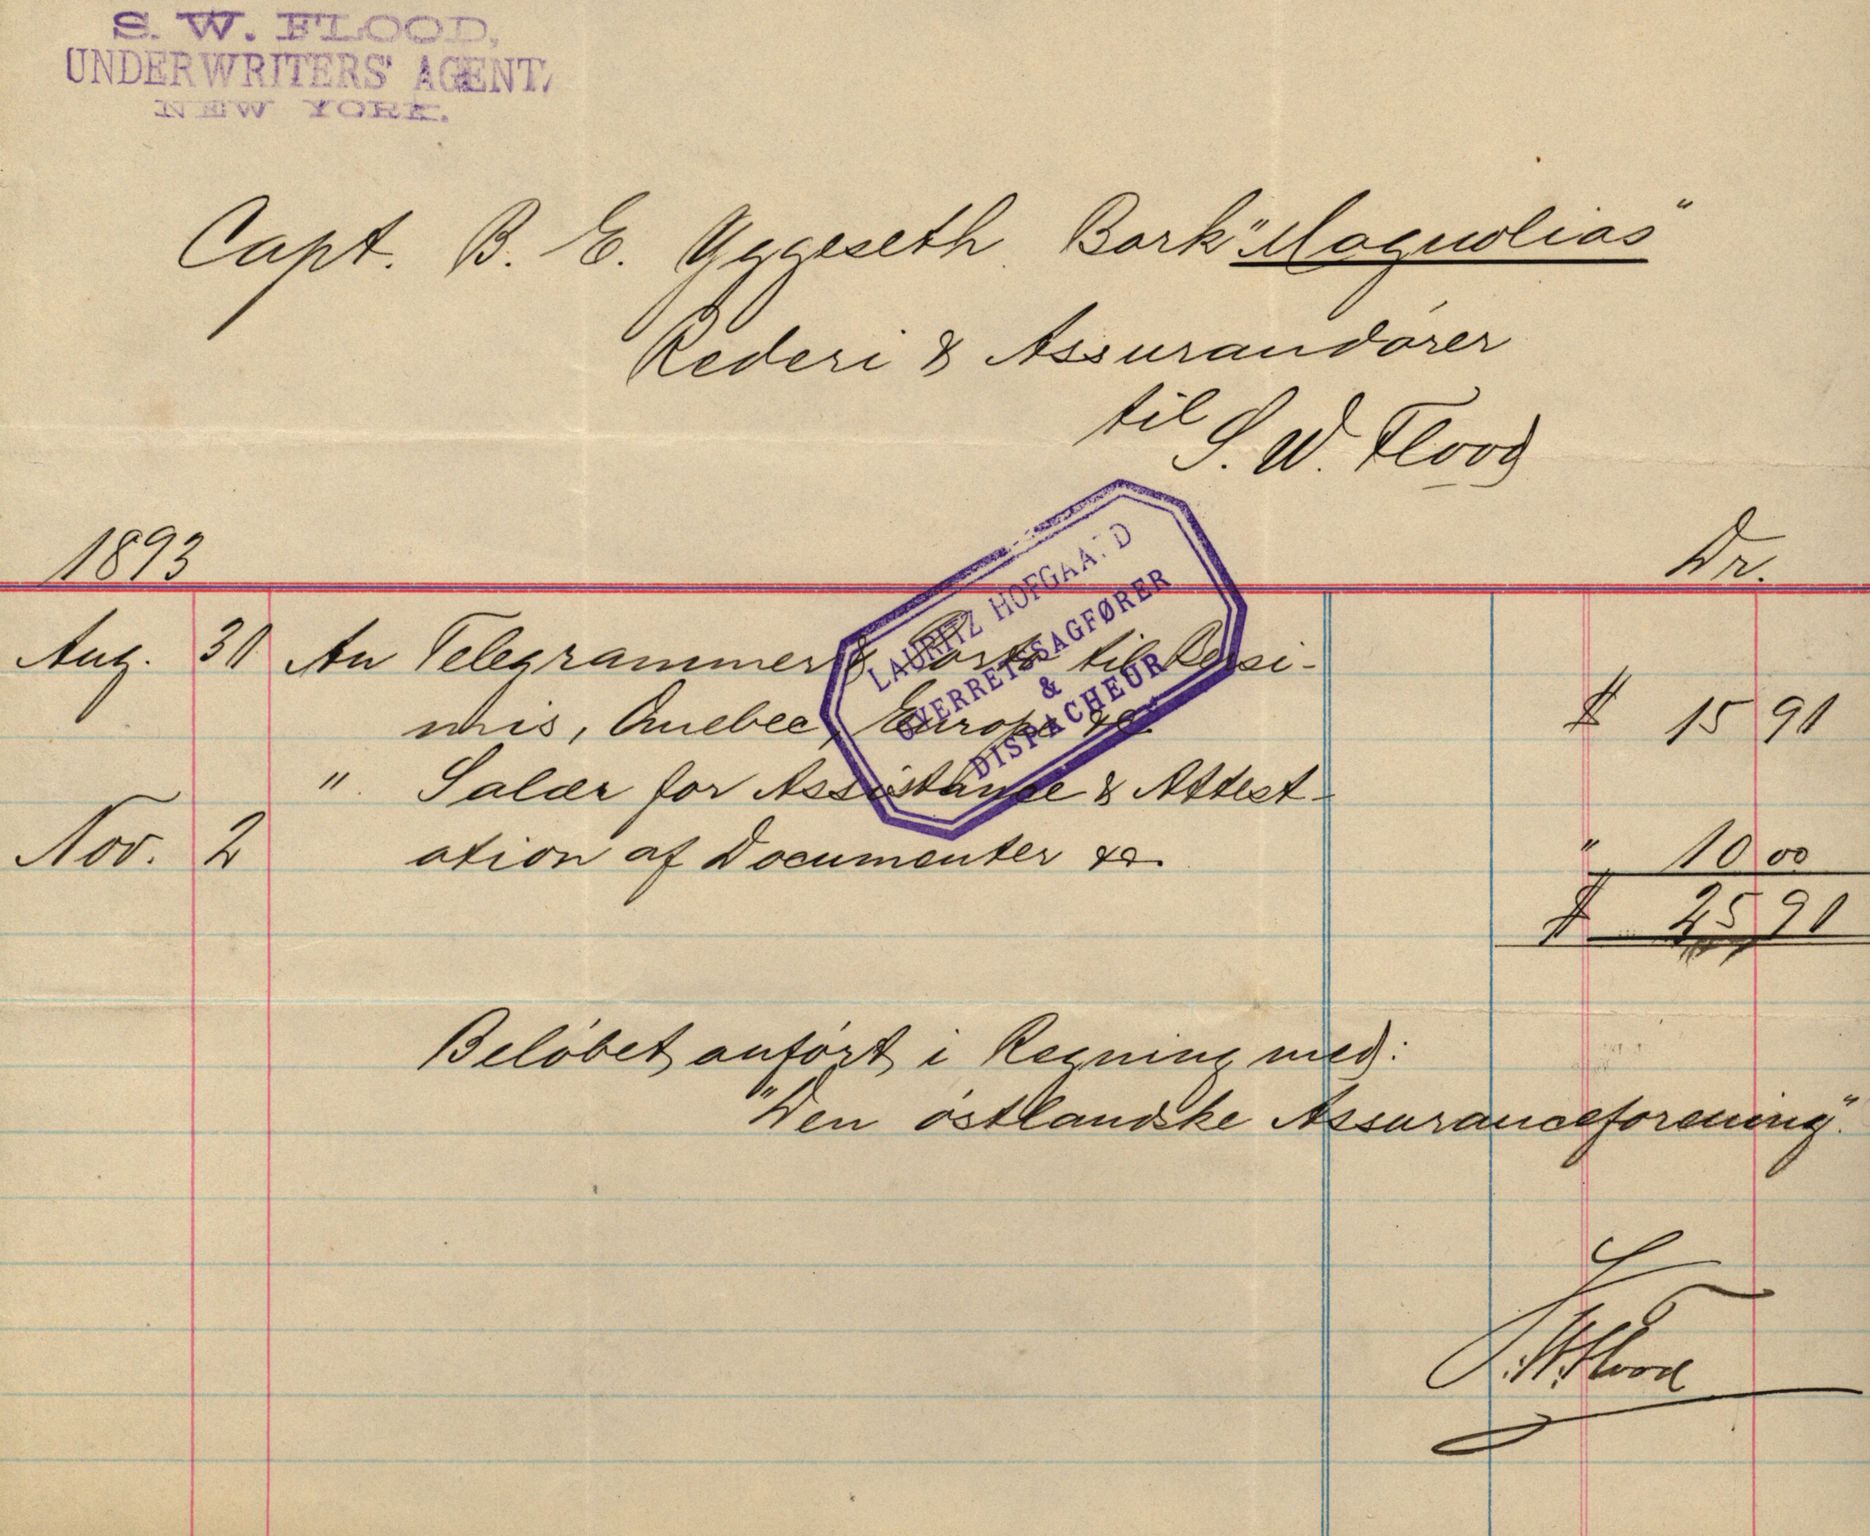 S. W. FLOOD,
UNDERWRITERS' AGENT,
NEW YORK.
Capt. B. E. Yggeseth Bark "Magnolias"
Rederi & Assurandører
til S. W. Flood
1893 Dr.
LAURITZ HOFGAARD
OVERRETSSAGFØRER
&
DISPACHEUR
Aug. 31 An Telegrammer & Porto til
mis, Quebec, Europa &c. $ 15 91
" Salær for Assistance & Attest-
Nov. 2 ation af Documenter &c. " 10 00
$ 25 91
Beløbet anført i Regning med:
"Den østlandske Assuranceforening".
S. W. Flood